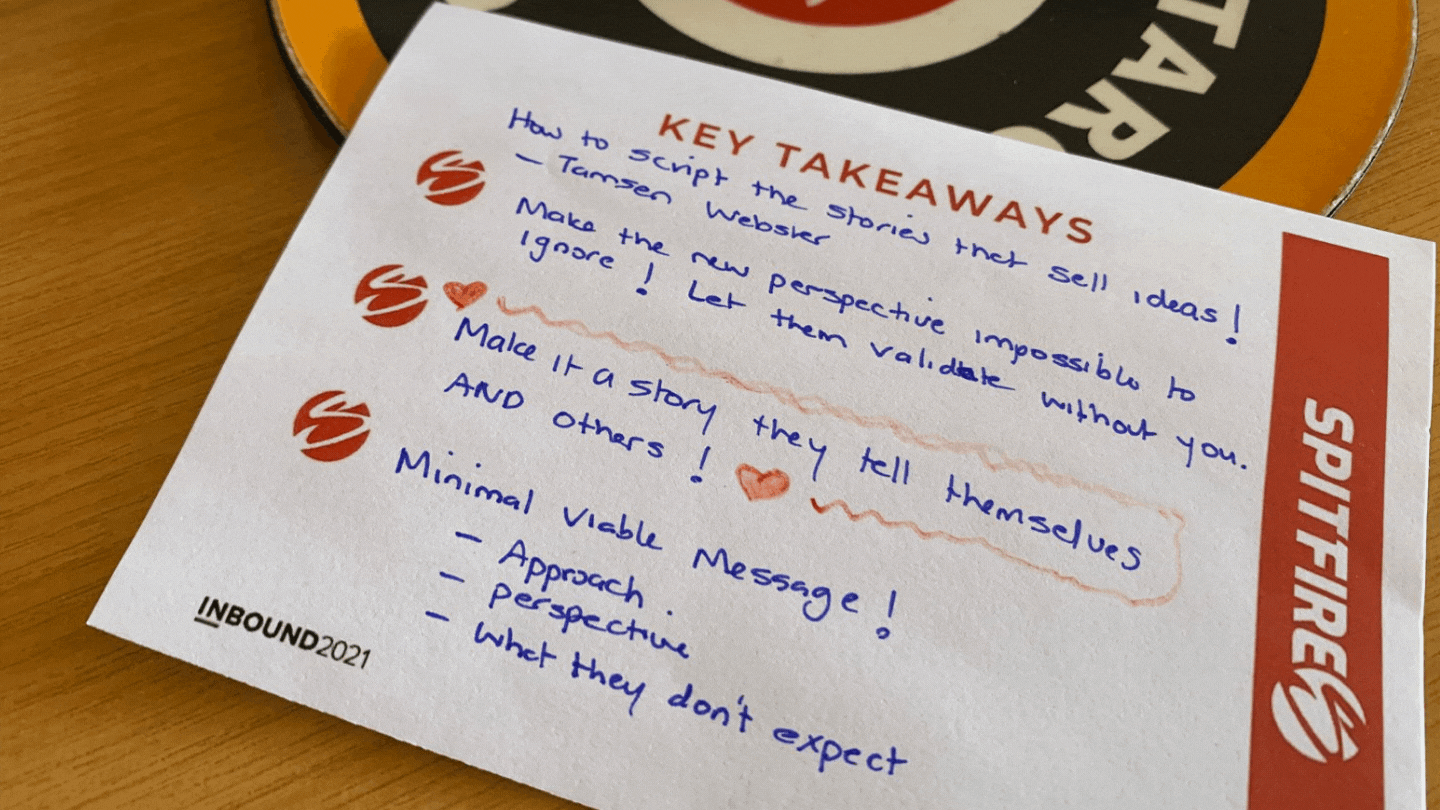 TAR
KEY TAKEAWAYS
How to script the stories that sell ideas!
- Tamsen Webster
Make the new perspective impossible to
Ignore! Let them validate without you.
Make it a story they tell themselves
AND others!
Minimal Viable Message!
- Approach.
- perspective
- what they don't expect
INBOUND2021
SPITFIRE